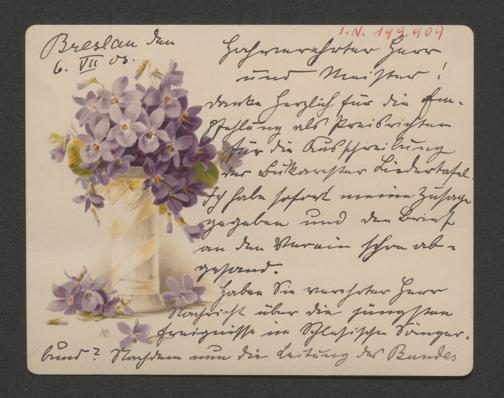 I.N. 199.909
Breslau den
6. VII 03.
Hochverehrter Herr
und Meister!
danke herzlich für die Em-
pfehlung als Preisrichter
für die Ausschreibung
der Bukarester Liedertafel.
Ich habe sofort meine Zusage
gegeben und den Brief
an den Verein schon ab-
gesand.
Haben Sie verehrter Herr
Nachricht über die jüngsten
Ereignisse im Schlesischen Sänger-
bund? Nachdem nun die Leitung des Bundes